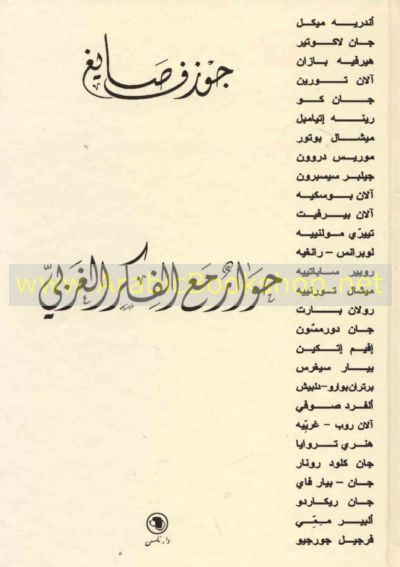 جوزف صايغ
حوار مع الفكر الغربيّ
www.ArabicBookshop.net
دار نلسن
أندريه ميكل
جان لاكوتير
هيرفيه بازان
آلان تورين
جان كو
رينه إتيامبل
ميشال بوتور
موريس دروون
جيلبر سيسبرون
آلان بوسكيه
آلان بيرفيت
تييري مولنييه
لوبرانس - رانغيه
روبير ساباتييه
ميشال تورنييه
رولان بارت
جان دورمسّون
إفيم إتكين
بيار سيغرس
برتران بوارو - دلبيش
ألفرد صوفي
آلان روب - غرييه
هنري تروايا
جان كلود رونار
جان - بيار فاي
جان ريكاردو
ألبير ممّي
فرجيل جورجيو